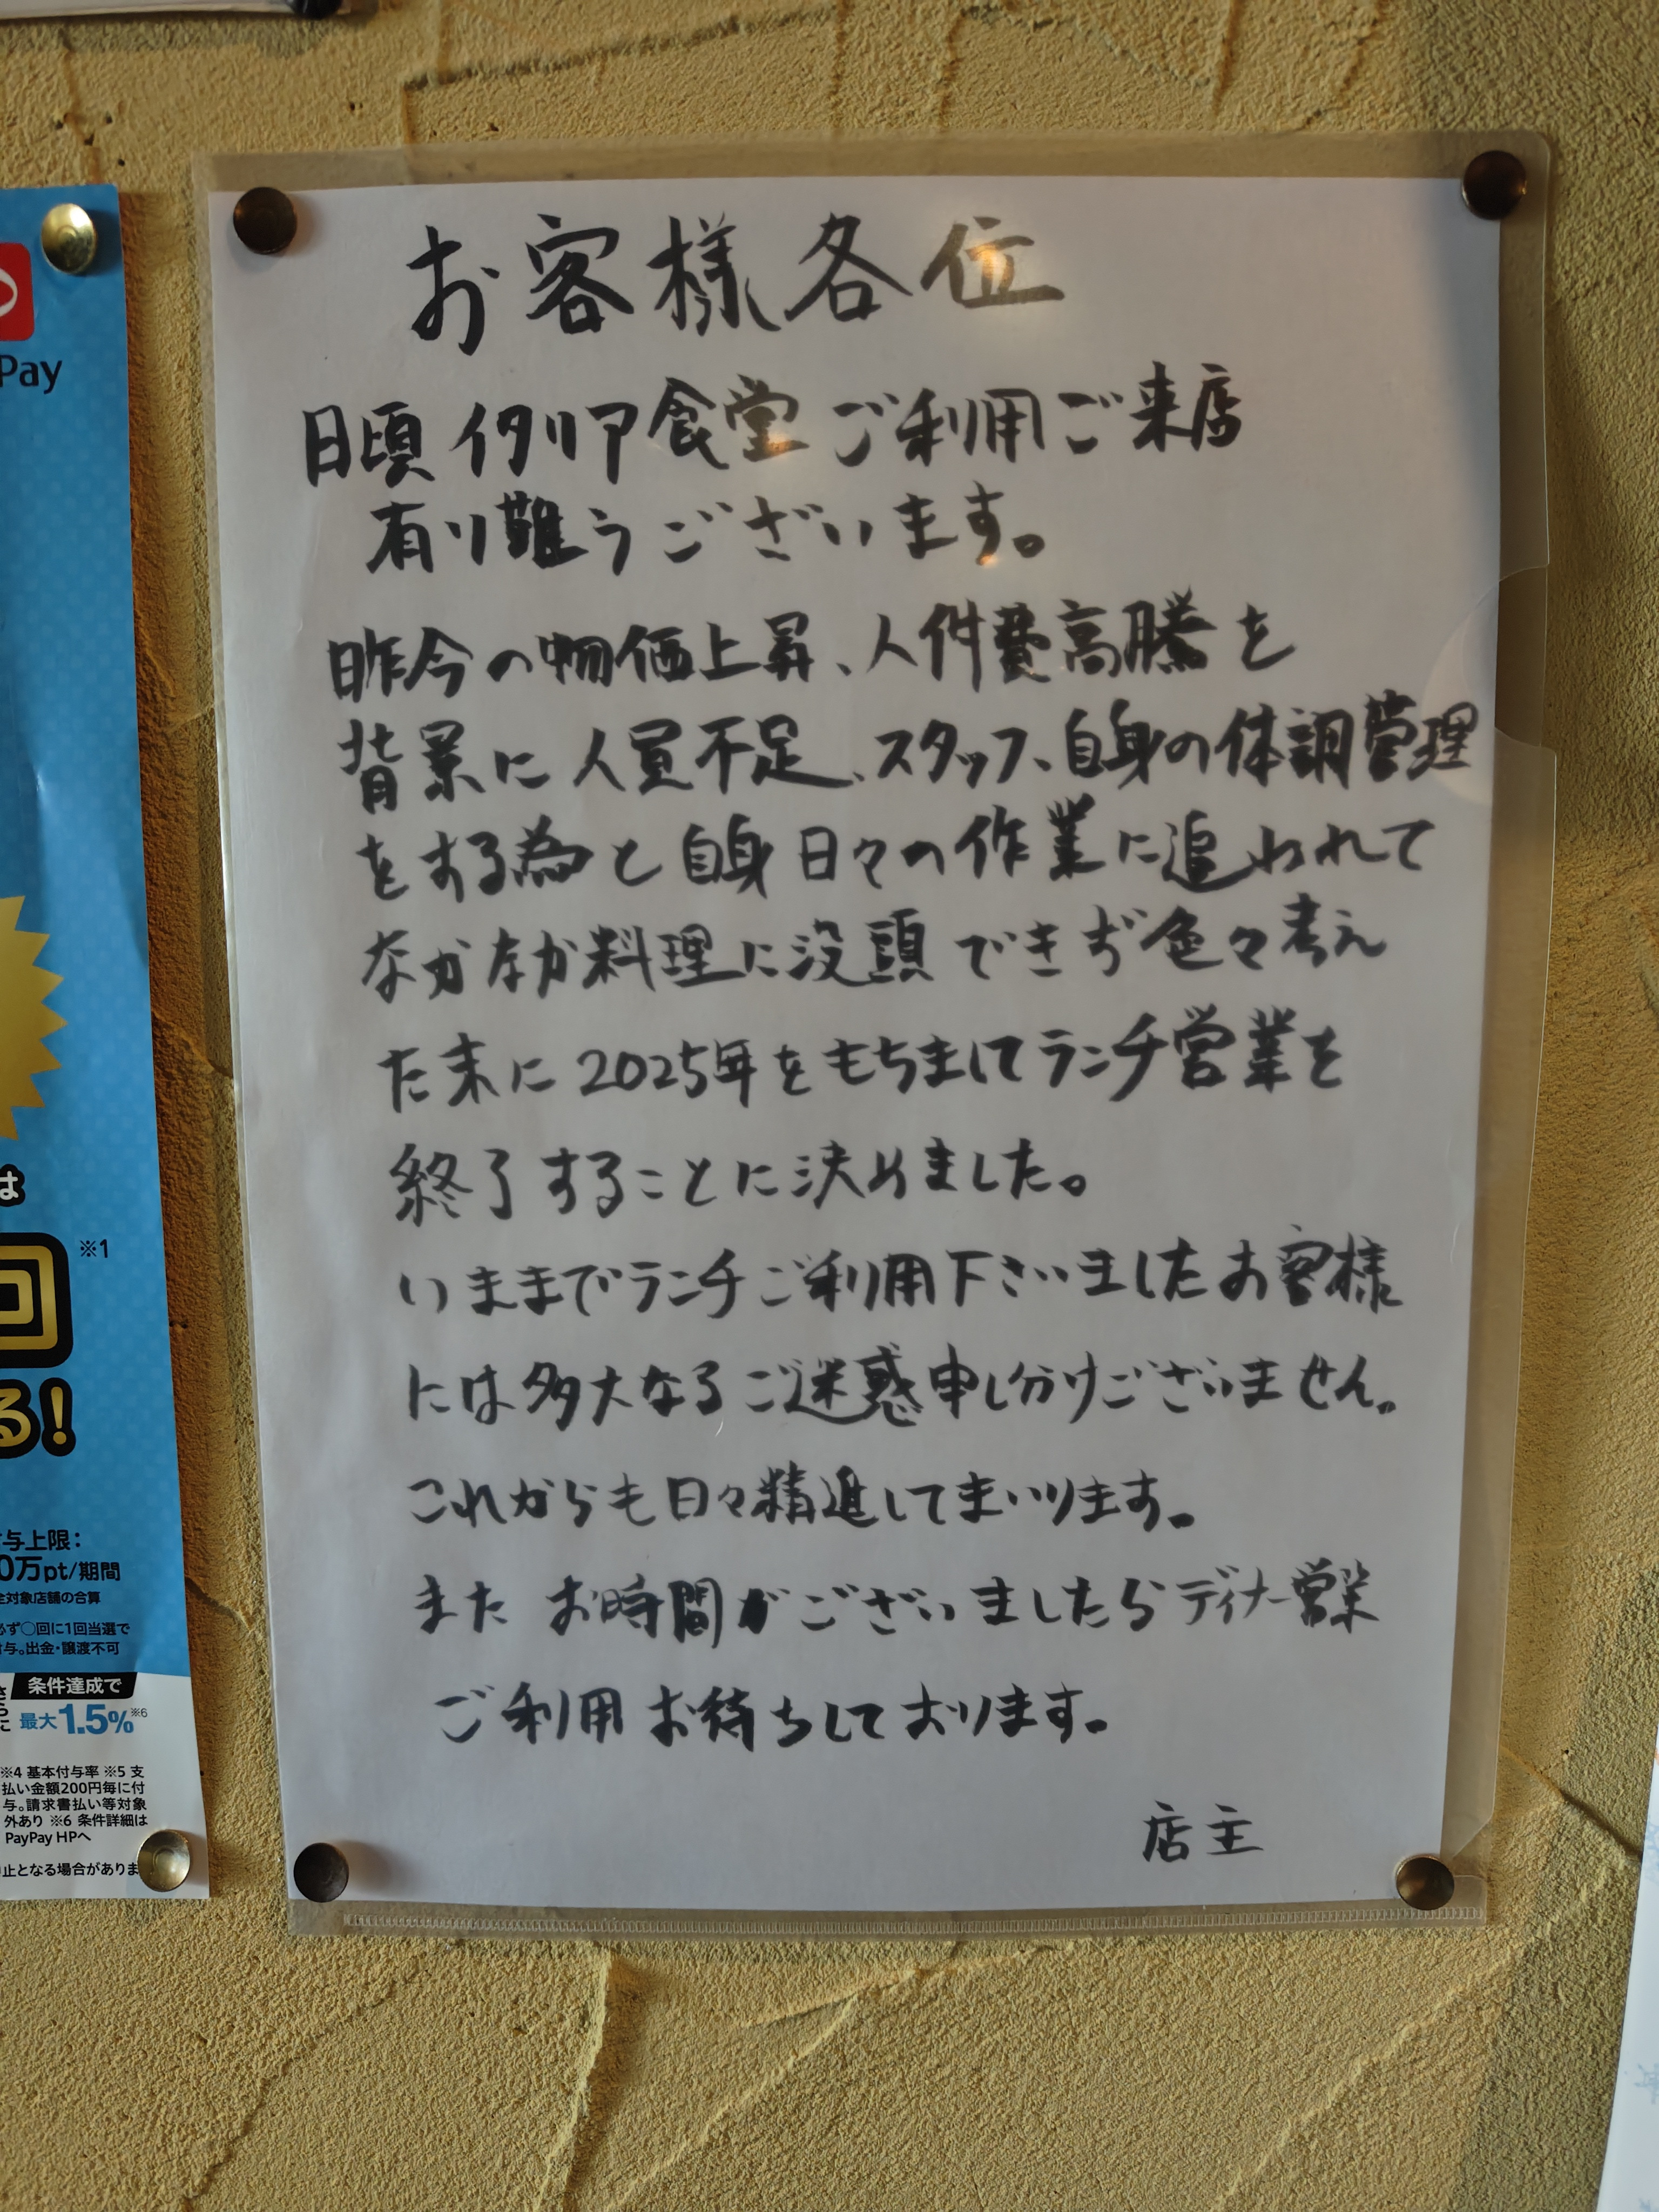 お客様各位
日頃イタリア食堂ご利用ご来店
有り難うございます。
昨今の物価上昇、人件費高騰を
背景に人員不足、スタッフ、自身の体調管理
をする為と自身日々の作業に追われて
なかなか料理に没頭できず色々考え
た末に2025年をもちましてランチ営業を
終了することに決めました。
いままでランチご利用下さいましたお客様
には多大なるご迷惑申し分けございません。
これからも日々精進してまいります。
またお時間がございましたらディナー営業
ご利用お待ちしております。
店主
Pay
は
回
※1
る!
与上限:
0万pt/期間
全対象店舗の合算
必ず○回に1回当選で
付与。出金・譲渡不可
条件達成で
さらに
最大1.5%※6
※4 基本付与率 ※5 支
払い金額200円毎に付
与。請求書払い等対象
外あり ※6 条件詳細は
PayPay HPへ
止となる場合がありま